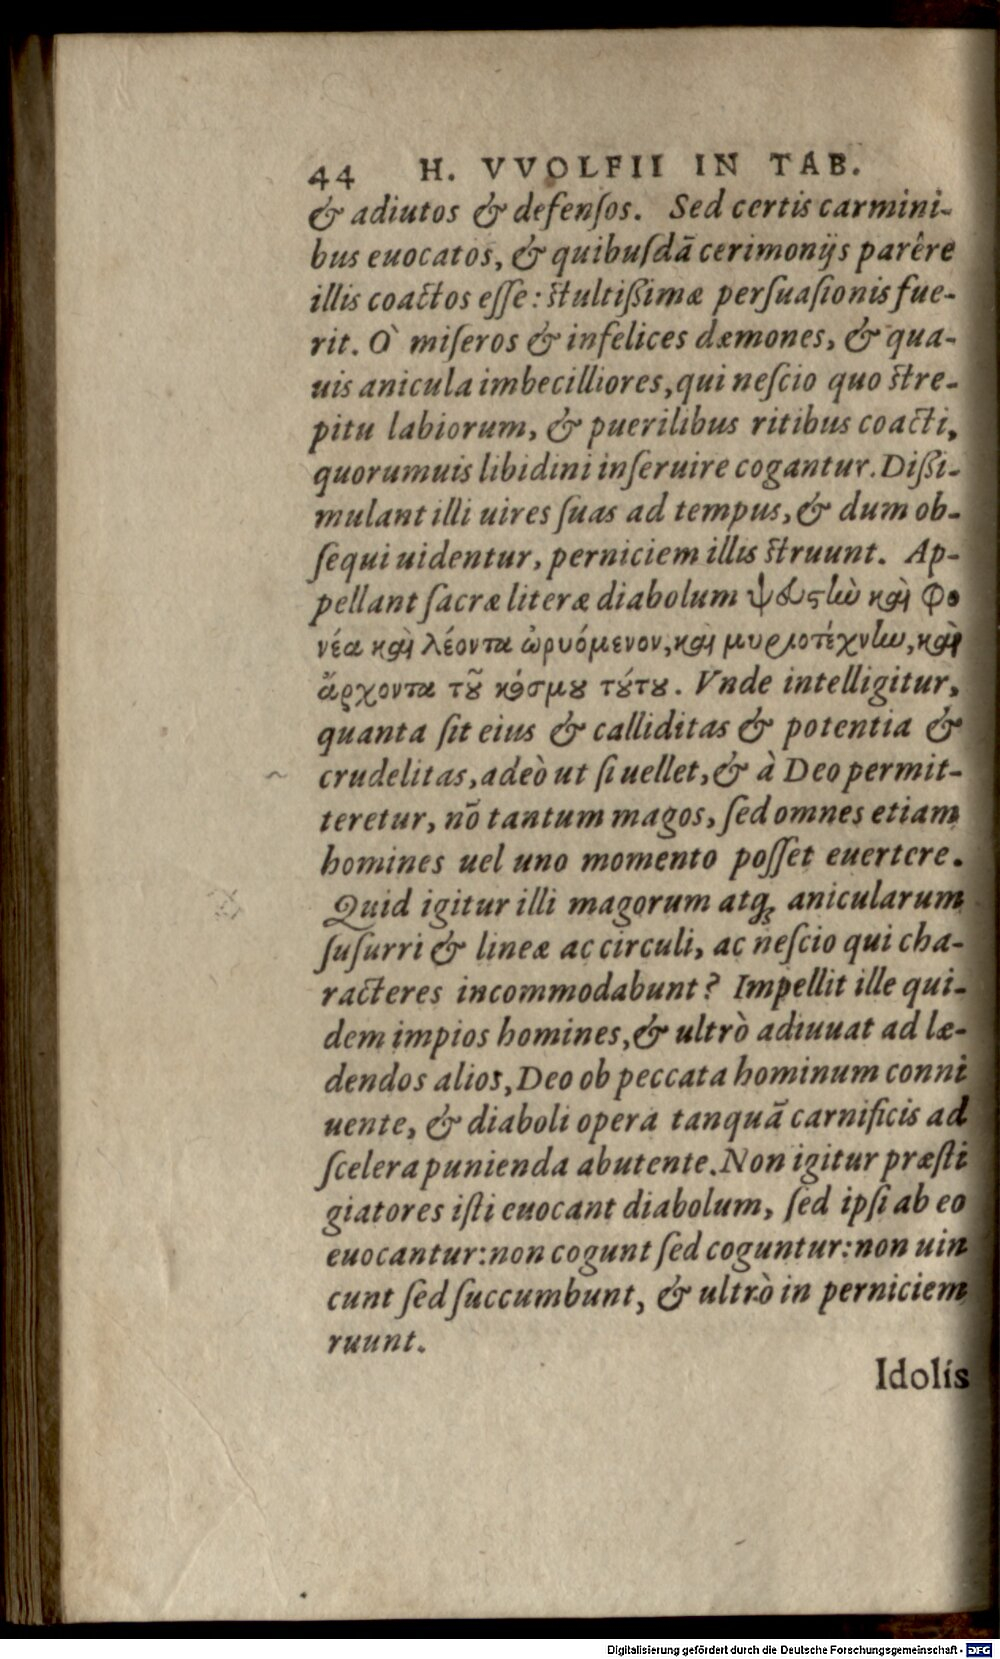 44 H. VVOLFII IN TAB.
& adiutos & defenſos. Sed certis carmini-
bus euocatos, & quibuſdã cerimonijs parêre
illis coactos eſſe: ſtultißimæ perſuaſionis fue-
rit. Ò miſeros & infelices dæmones, & qua-
uis anicula imbecilliores, qui neſcio quo ſtre-
pitu labiorum, & puerilibus ritibus coacti,
quorumuis libidini inſeruire cogantur. Dißi-
mulant illi uires ſuas ad tempus, & dum ob-
ſequi uidentur, perniciem illis ſtruunt. Ap-
pellant ſacræ literæ diabolum ψεύςτην καὶ φο
νέα καὶ λέοντα ὠρυόμενον, καὶ μυριοτέχνην, καὶ
ἄρχοντα τοῦ κόσμου τούτου. Vnde intelligitur,
quanta ſit eius & calliditas & potentia &
crudelitas, adeò ut ſi uellet, & à Deo permit-
teretur, nõ tantum magos, ſed omnes etiam
homines uel uno momento poſſet euertere.
Quid igitur illi magorum atq; anicularum
ſuſurri & lineæ ac circuli, ac neſcio qui cha-
racteres incommodabunt? Impellit ille qui-
dem impios homines, & ultrò adiuuat ad læ-
dendos alios, Deo ob peccata hominum conni
uente, & diaboli opera tanquã carnificis ad
ſcelera punienda abutente. Non igitur præſti
giatores iſti euocant diabolum, ſed ipſi ab eo
euocantur: non cogunt ſed coguntur: non uin
cunt ſed ſuccumbunt, & ultrò in perniciem
ruunt.
Idolis
Digitalisierung gefördert durch die Deutsche Forschungsgemeinschaft - DFG